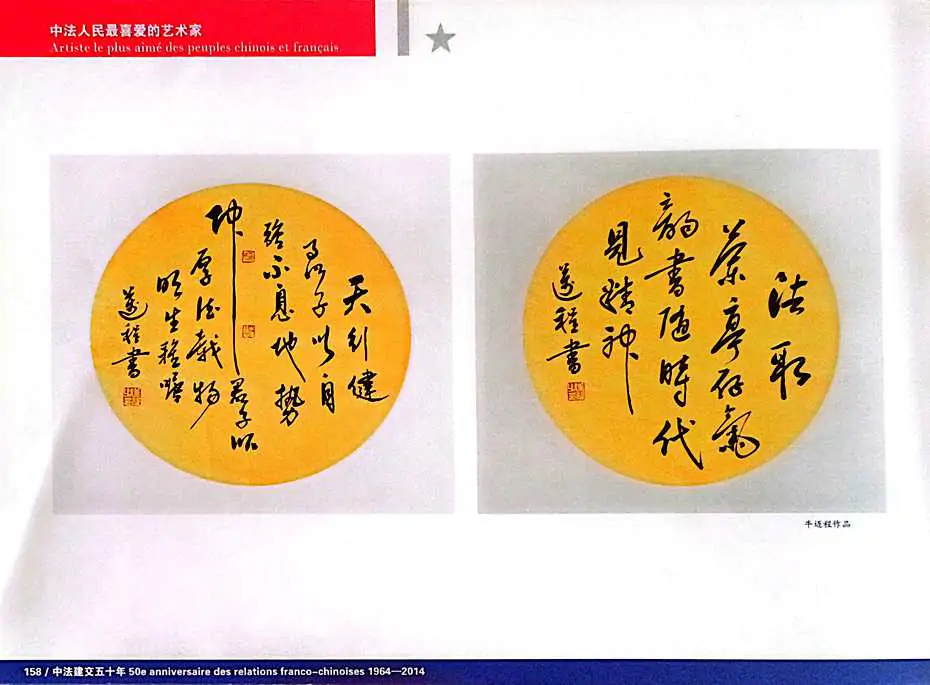 中法人民最喜爱的艺术家
Artiste le plus aimé des peuples chinois et français
天行健
君子以自
强不息地势
坤君子以
厚德载物
邁程書
法取
蘭亭存氣
韵書随時代
見精神
邁程書
牛迈程作品
158 / 中法建交五十年 50e anniversaire des relations franco-chinoises 1964—2014